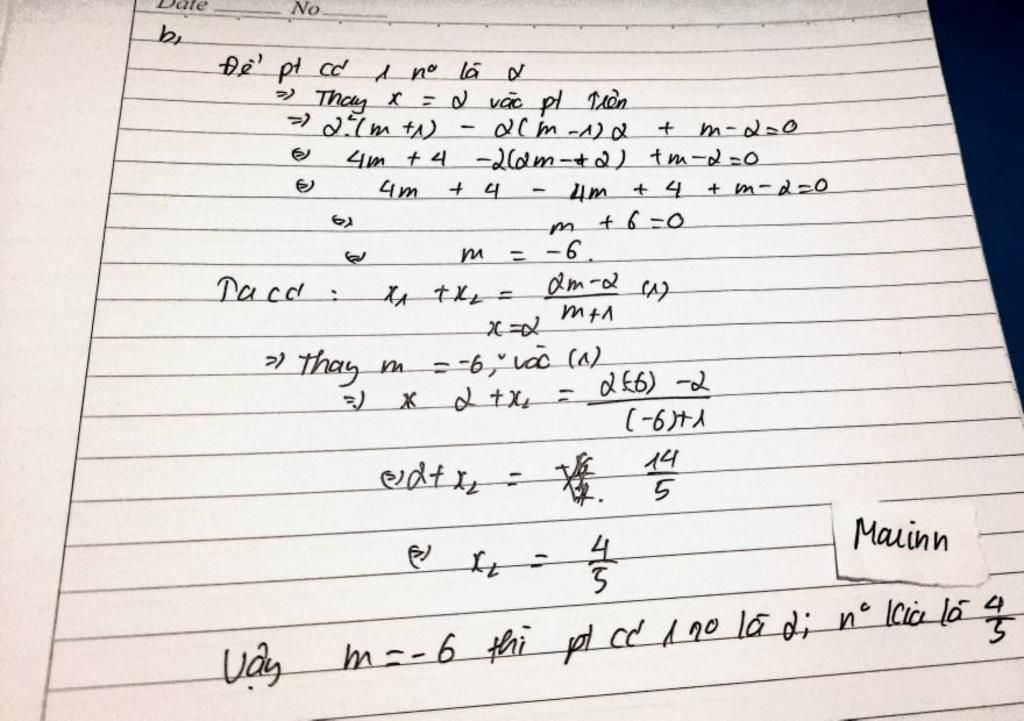 Date No
b,
Để pt có 1 no là 2
=> Thay x = 2 vào pt trên
=> 2².(m+1) - 2(m-1)2 + m-2=0
<=> 4m + 4 -2(2m-2) +m-2=0
<=> 4m + 4 - 4m + 4 + m-2=0
<=> m + 6 =0
<=> m = -6.
Ta có : x₁ + x₂ = (2m-2)/(m+1) (1)
x=2
=> Thay m = -6, vào (1)
=> 2 + x₂ = (2(-6) -2)/((-6)+1)
<=> 2+ x₂ = 14/5
<=> x₂ = 4/5
Mauinn
Vậy m = -6 thì pt có 1 no là 2; no kia là 4/5